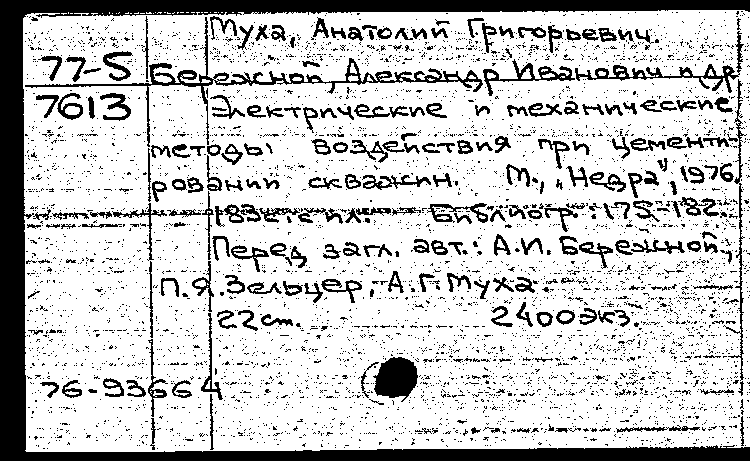 Муха, Анатолий Григорьевич.
77-5 Бережной, Александр Иванович и др
7613 Электрические и механические
методы воздействия при цементи-
ровании скважин. М., „Недра", 1976.
183с. с ил. Библиогр.: 175-182.
Перед загл. авт.: А.И. Бережной,
П.Я. Зельцер, А.Г. Муха.
22 см. 2400 экз.
76-93664